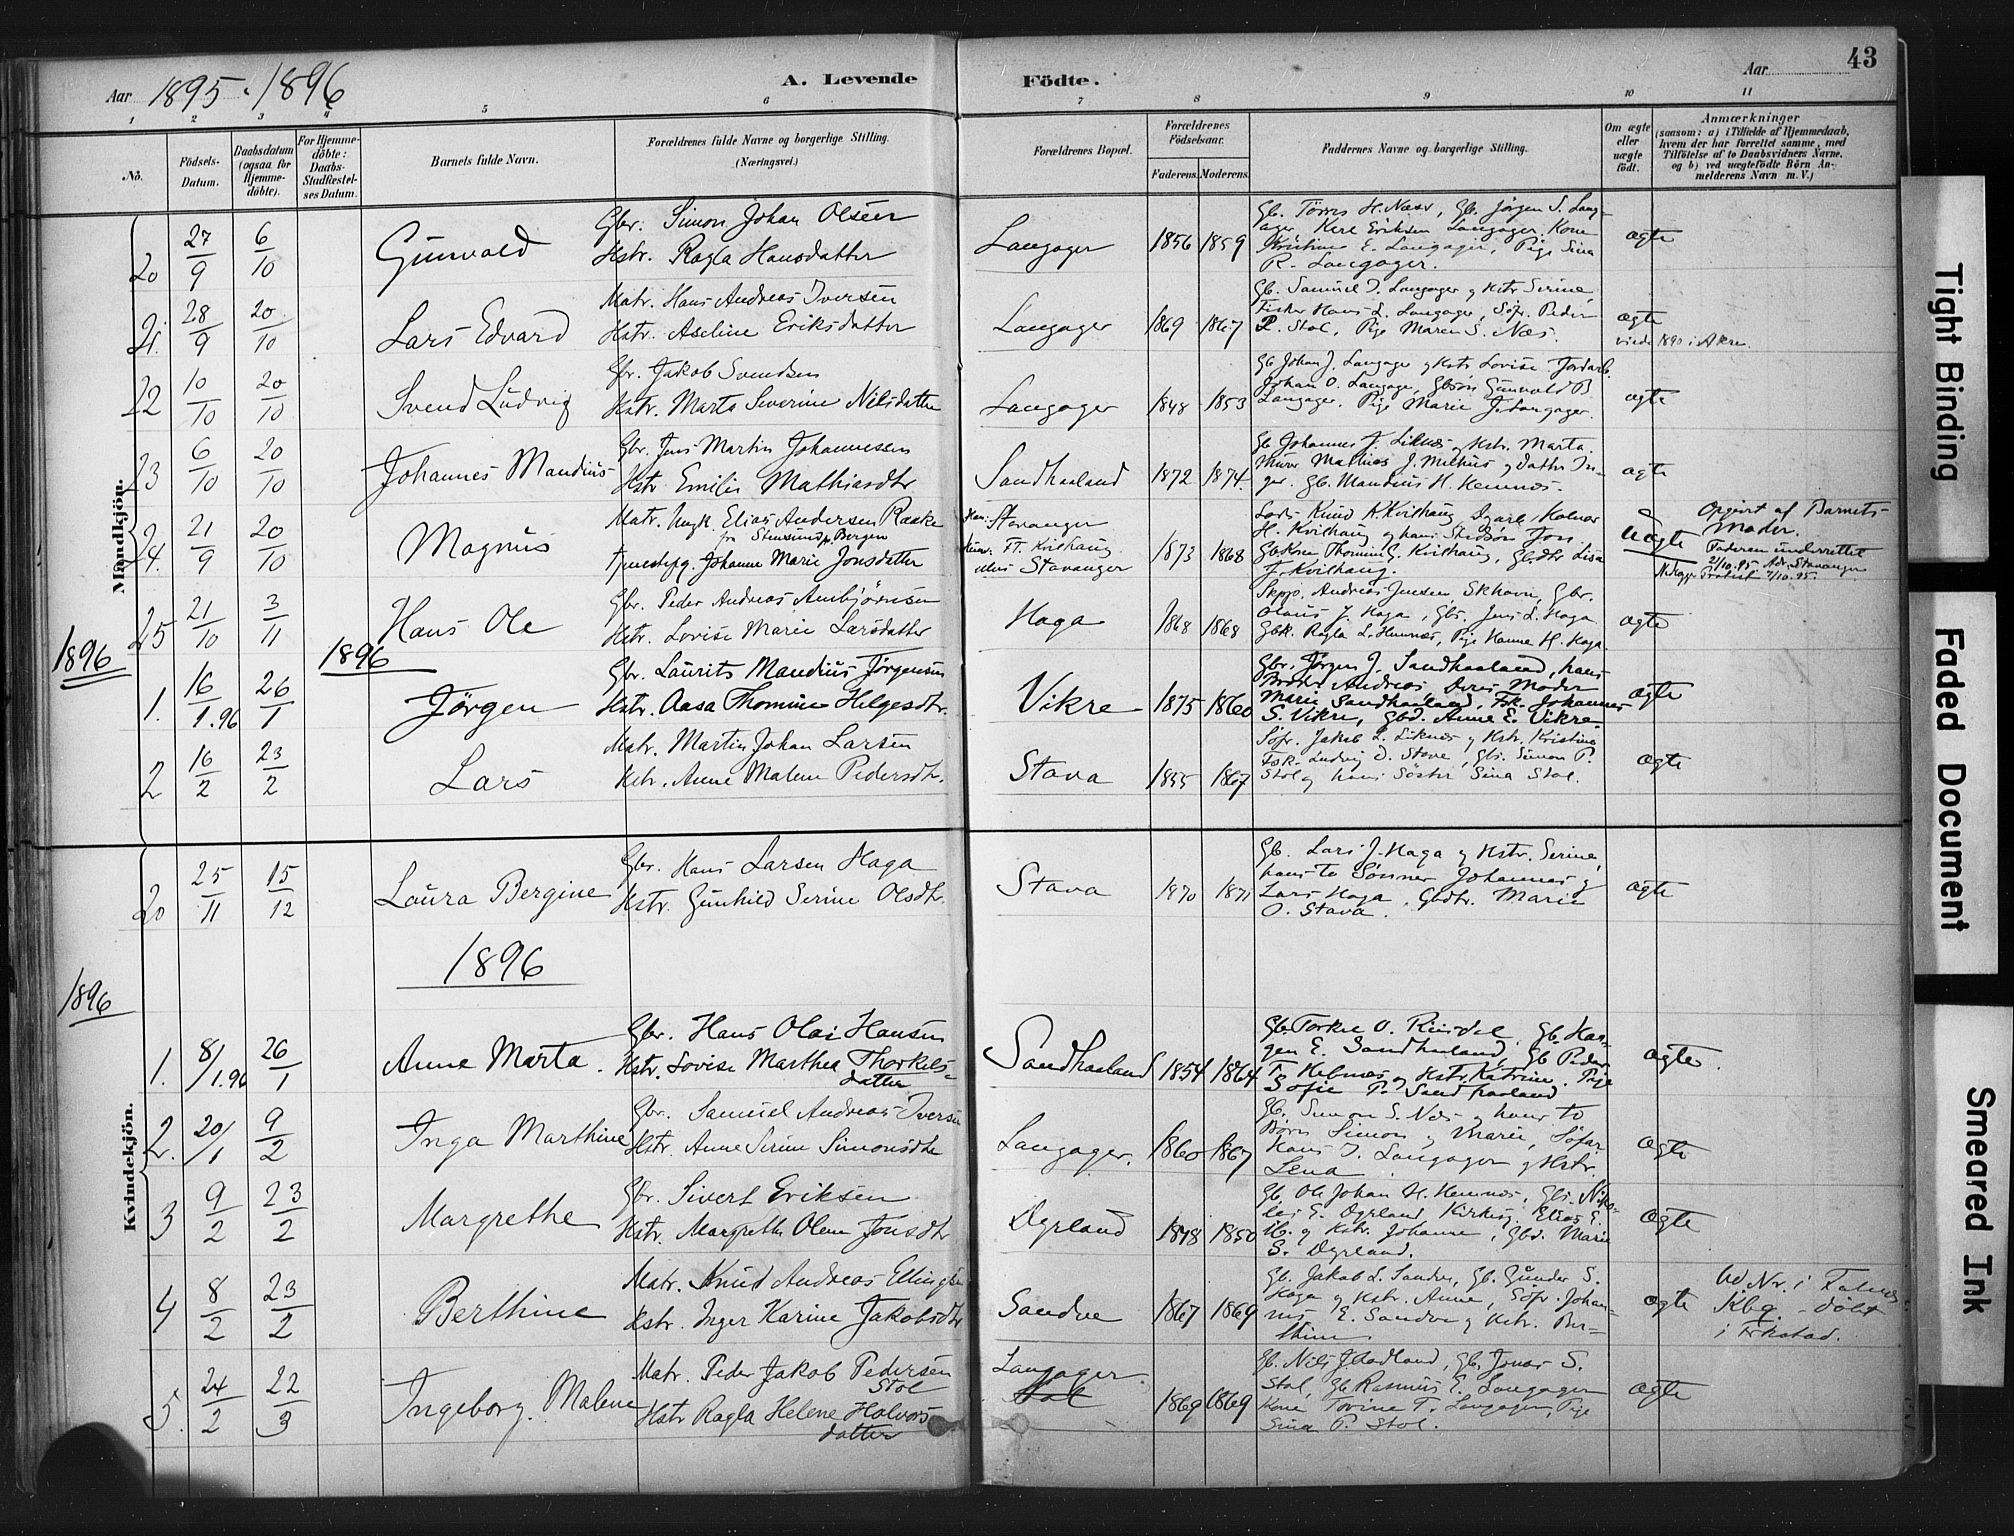 43
Aar 1895. 1896
A. Levende
Födte.
Aar
1 2 3 4 5 6 7 8 9 10 11
No.
Födsels-Datum.
Daabsdatum (ogsaa for Hjemme-döbte).
For Hjemme-döbte: Daabs-Stadfæstel-ses Datum.
Barnets fulde Navn.
Forældrenes fulde Navne og borgerlige Stilling. (Næringsvei.)
Forældrenes Bopæl.
Forældrenes Födselsaar.
Faderens. Moderens.
Faddernes Navne og borgerlige Stilling.
Om ægte eller uægte födt.
Anmærkninger
(saasom: a) i Tilfælde af Hjemmedaab, hvem der har forrettet samme, med Tilföielse af to Daabsvidners Navne, og b) ved uægtefödte Börn An-melderens Navn m. V.)
Mandkjön.
20 27/9 6/10 Gunvald
Gbr. Simon Johan Olsen
Hstr. Ragla Hansdatter
Langager 1856 1859
Gb. Torres H. Næss, Gb. Jörgen S. Lang-
ager, Karl Eriksen Langager, Kone
Kristine E. Langager, Pige Sina
R. Langager.
ægte
21. 28/9 20/10 Lars Edvard
Matr. Hans Andreas Iversen
Hstr. Aseline Eriksdatter
Langager 1869 1867
Gb. Samuel I. Langager og Hstr Serine,
Fisker Hans L. Langager, Söfr. Peder
P. Stol, Pige Maren S. Næs.
ægte
viede 1890 i Akre.
22 10/10 20/10 Svend Ludvig
Gbr. Jakob Svendsen
Hstr. Marta Severine Nilsdatter
Langager 1848 1853
Gb Johan J. Langager og Hstr Lovise, Jordarb.
Johan O. Langager, Gbsön Gunvald B
Langager, Pige Marie J. Langager.
ægte
23 6/10 20/10 Johannes Mandius
Gbr. Jens Martin Johannessen
Hstr Emilie Mathiasdtr
Sandhaaland 1872 1874.
Gb Johannes J. Liknes og Hstr. Marta.
Murer Mathias J. Milhus og Datter In-
ger. Gb. Mandius H. Hemnes.
ægte
24. 21/9 20/10 Magnus
Matr. Ungk. Elias Andersen Raake
fr Stensund p Bergen
Tjenestepg. Johanne Marie Jonsdatter
Han: Stavanger
Hun: Ft. Kvilhaug
Stavanger
1873 1868
Lods Knud K. Kvilhaug
H. Kvilhaug og hans Stedsön Jon.
Gbkone Thomine G. Kvilhaug, Gbdtr Lisa
J. Kvilhaug.
Uægte
Opgivet af Barnets
Moder.
Faderen underrettet
21/10.95. Adr. Stavanger
25 21/10 3/11 Hans Ole
Gbr. Peder Andreas Ambjörnsen
Hstr. Lovise Marie Larsdatter
Haga 1868 1868
Skpp. Andreas Jensen, Skhavn, Gbr.
Olaus J. Haga, Gbs. Jens L. Haga
Gbk. Ragla L. Hemnes, Pige Hanne H. Haga.
ægte
1896
1896
1. 16/1.96 26/1 Jörgen
Gbr. Laurits Mandius Jörgensen
Hstr. Aasa Thomine Helgesdtr.
Vikre 1875 1860
Gbr. Jörgen J. Sandhaaland, hans
Broder Andreas, Deres Moder
Marie Sandhaaland, Fsk. Johannes
S. Vikre, Gbd. Anne E. Vikre.
ægte
2 16/2 23/2 Lars
Matr. Martin Johan Larsen
Hstr. Anne Malene Pedersdtr.
Stava 1855 1867
Söfr. Jakob L. Liknes og Hstr. Kristine
Fsk. Ludvig D. Stave, Gbs. Simon P.
Stol og hans Söster Sina Stol.
ægte
Kvindekjön.
20 25/11 15/12 Laura Bergine
Gbr. Hans Larsen Haga
Hstr. Gunhild Serine Olsdtr.
Stava 1870 1871
Gb. Lars J. Haga og Hstr. Serine,
hans to Sönner Johannes og
Lars Haga, Gbdtr. Marie
O. Stava.
ægte
1896
1896
1. 8/1.96 26/1 Anne Marta.
Gbr. Hans Olai Hansen
Hstr. Lovise Marthea Thorkels-
datter
Sandhaaland 1854 1864
Gb. Torkel O. Rindal, Gb. Haa-
gen E. Sandhaaland, Gb Peder
T. Helnes og Hstr. Katrine. Pige
Sofie P. Sandhaaland
ægte.
2. 20/1 9/2 Inga Marthine
Gbr. Samuel Andreas Iversen
Hstr. Anne Serine Simonsdtr
Langager. 1860 1867
Gb. Simon S. Næs og hans to
Börn Simon og Marie, Söfar.
Hans I. Langager og Hstr.
Lena.
ægte
3 9/2 23/2 Margrethe
Gbr. Sivert Eriksen
Hstr. Margrethe Olene Jonsdtr
Dyrland 1848 1850
Gb. Ole Johan H. Hemnes, Gbs. Niko-
lai E. Dyrland, Kirkesg. Elias E.
H. og Hstr. Johanne, Gbd. Marie
S. Dyrland.
ægte
4 8/2 23/2 Berthine
Matr. Knud Andreas Ellingsen
Hstr. Inger Karine Jakobsdtr
Sandve 1867 1869
Gb. Jakob L. Sandve, Gb. Gunder S.
Haga og Hstr. Anne, Söfr. Johan-
nes E. Sandve og Hstr. Ber-
thine
ægte
Ud Nr. i Falnes
Kbg. - döbt
i Frkstad.
5. 24/2 22/3 Ingeborg Malene
Matr. Peder Jakob Pedersen
Stol
Hstr Ragla Helene Halvors-
datter
Langager
Stol
1869 1869
Gb. Nils J. Aadland, Gb. Jonas S.
Stol, Gb Rasmus E. Langager
Kone Torine T. Langager, Pige
Sina P. Stol.
ægte
Tight Binding
Faded Document
Smeared Ink